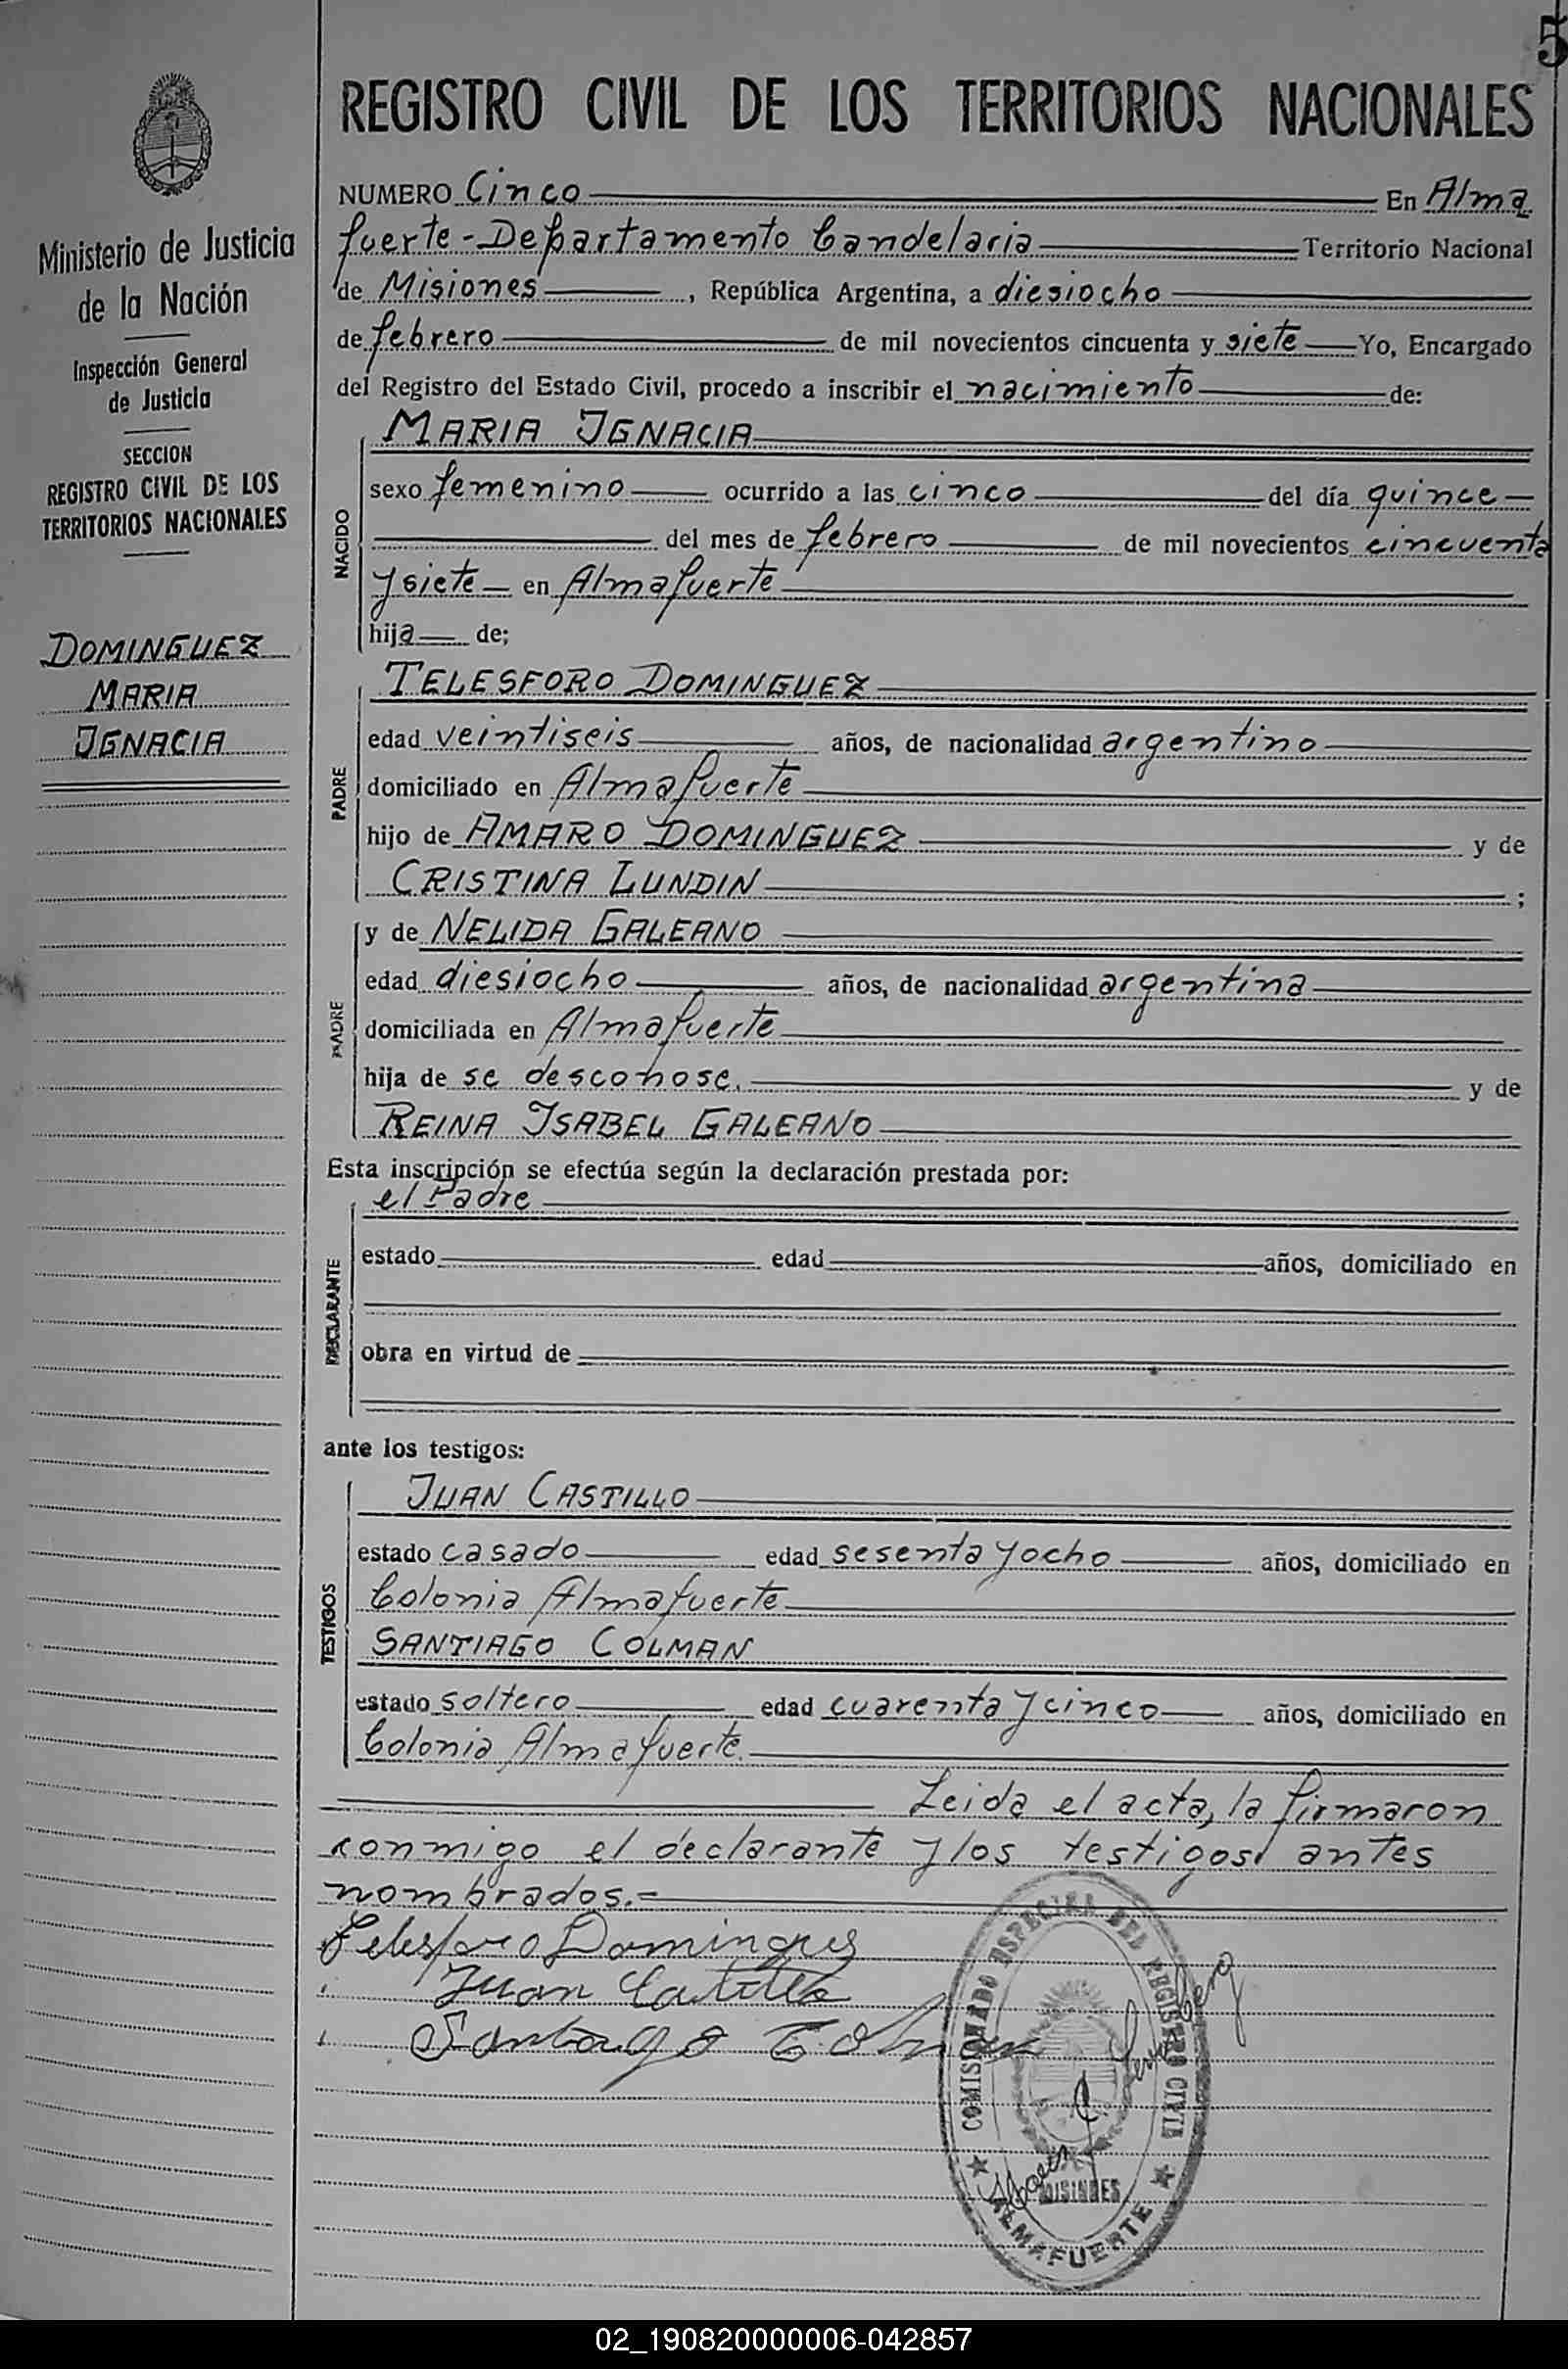 5
REGISTRO CIVIL DE LOS TERRITORIOS NACIONALES
Ministerio de Justicia
de la Nación
Inspección General
de Justicia
SECCION
REGISTRO CIVIL DE LOS
TERRITORIOS NACIONALES
DOMINGUEZ
MARIA
IGNACIA
NUMERO Cinco En Alma
fuerte-Departamento Candelaria Territorio Nacional
de Misiones, República Argentina, a diesiocho
de febrero de mil novecientos cincuenta y siete Yo, Encargado
del Registro del Estado Civil, procedo a inscribir el nacimiento de:
NACIDO
MARIA IGNACIA
sexo femenino ocurrido a las cinco del día quince
del mes de febrero de mil novecientos cincuenta
y siete en Almafuerte
hija de;
PADRE
TELESFORO DOMINGUEZ
edad veintiseis años, de nacionalidad argentino
domiciliado en Almafuerte
hijo de AMARO DOMINGUEZ y de
CRISTINA LUNDIN ;
MADRE
y de NELIDA GALEANO
edad diesiocho años, de nacionalidad argentina
domiciliada en Almafuerte
hija de se desconose. y de
REINA ISABEL GALEANO
Esta inscripción se efectúa según la declaración prestada por:
DECLARANTE
el Padre
estado edad años, domiciliado en
obra en virtud de
ante los testigos:
TESTIGOS
JUAN CASTILLO
estado casado edad sesenta y ocho años, domiciliado en
Colonia Almafuerte
SANTIAGO COLMAN
estado soltero edad cuarenta y cinco años, domiciliado en
Colonia Almafuerte.
Leida el acta, la firmaron
conmigo el declarante y los testigos antes
nombrados.-
Telesforo Domingues
Juan Castillo
Santiago Colman
COMISIONADO ESPECIAL DEL REGISTRO CIVIL
MISIONES
ALMAFUERTE
02_190820000006-042857